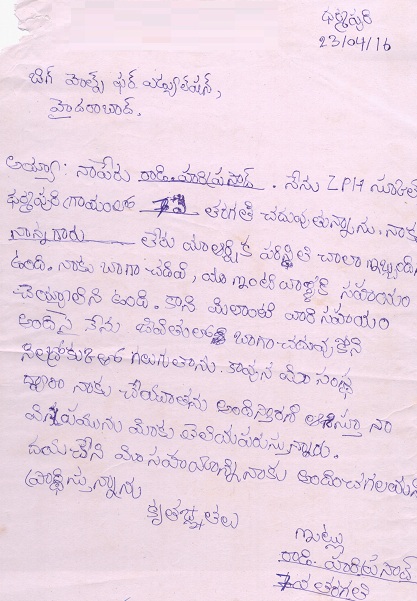 ధర్మపురి
23/04/16
బిగ్ హెల్ప్ ఫర్ ఎడ్యుకేషన్,
హైదరాబాద్.
అయ్యా: నాపేరు రాడి.హరిప్రసాద్. నేను ZPH స్కూల్
ధర్మపురి గ్రామంలో 7వ తరగతి చదువుతున్నాను. నాకు
నాన్నగారు లేరు మా ఆర్థిక పరిస్థితి చాలా ఇబ్బంది
ఉంది. నాకు బాగా చదివి, మా ఇంటి వాళ్లకి సహాయం
చేయ్యాలని ఉంది. కాని మీలాంటి వారి సహాయం
అందిస్తే నేను జీవితంలో బాగా చదువుకొని
నిలదొక్కుకో గలుగుతాను. కావున మీ సంస్థ
ద్వారా నాకు చేయూతను అందిస్తారని ఆశిస్తూ నా
విన్నపమును మీకు తెలియపరుస్తున్నాను.
దయచేసి మీ సహాయాన్ని నాకు అందించగలరని
ప్రార్థిస్తున్నాను
కృతజ్ఞతలు
ఇట్లు
రాడి. హరిప్రసాద్
7వ తరగతి